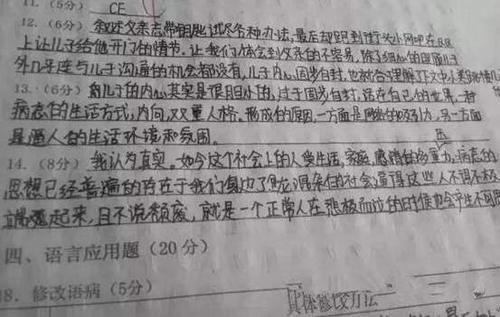 11. (5分) CE
12. (6分) 叙述父亲忘带钥匙试尽各种办法,最后却跑到街头小网吧在QQ
上让儿子给他开门的情节,让我们体会到父亲的不容易,除了细心的照顾儿子
外几乎连与儿子沟通的机会都没有,儿子内心固步自封,也就合理解下文中
13. (6分) 儿子的内心其实是很胆小的,过于固步自封,活在自己的世界,一种
病态的生活方式,内向,双重人格,形成的原因,一方面是网络的吸引力,另一方面
是逼人的生活环境和氛围。
14. (8分) 我认为真实,如今这个社会上的人受生活,家庭,感情的多重力,病态的
思想已经普遍的存在于我们身边了,混杂的社会逼得这些人不得不
起来,且不说颓废,就是一个正常人在
四、语言应用题(20分)
18. 修改语病(5分) 具体修改方法